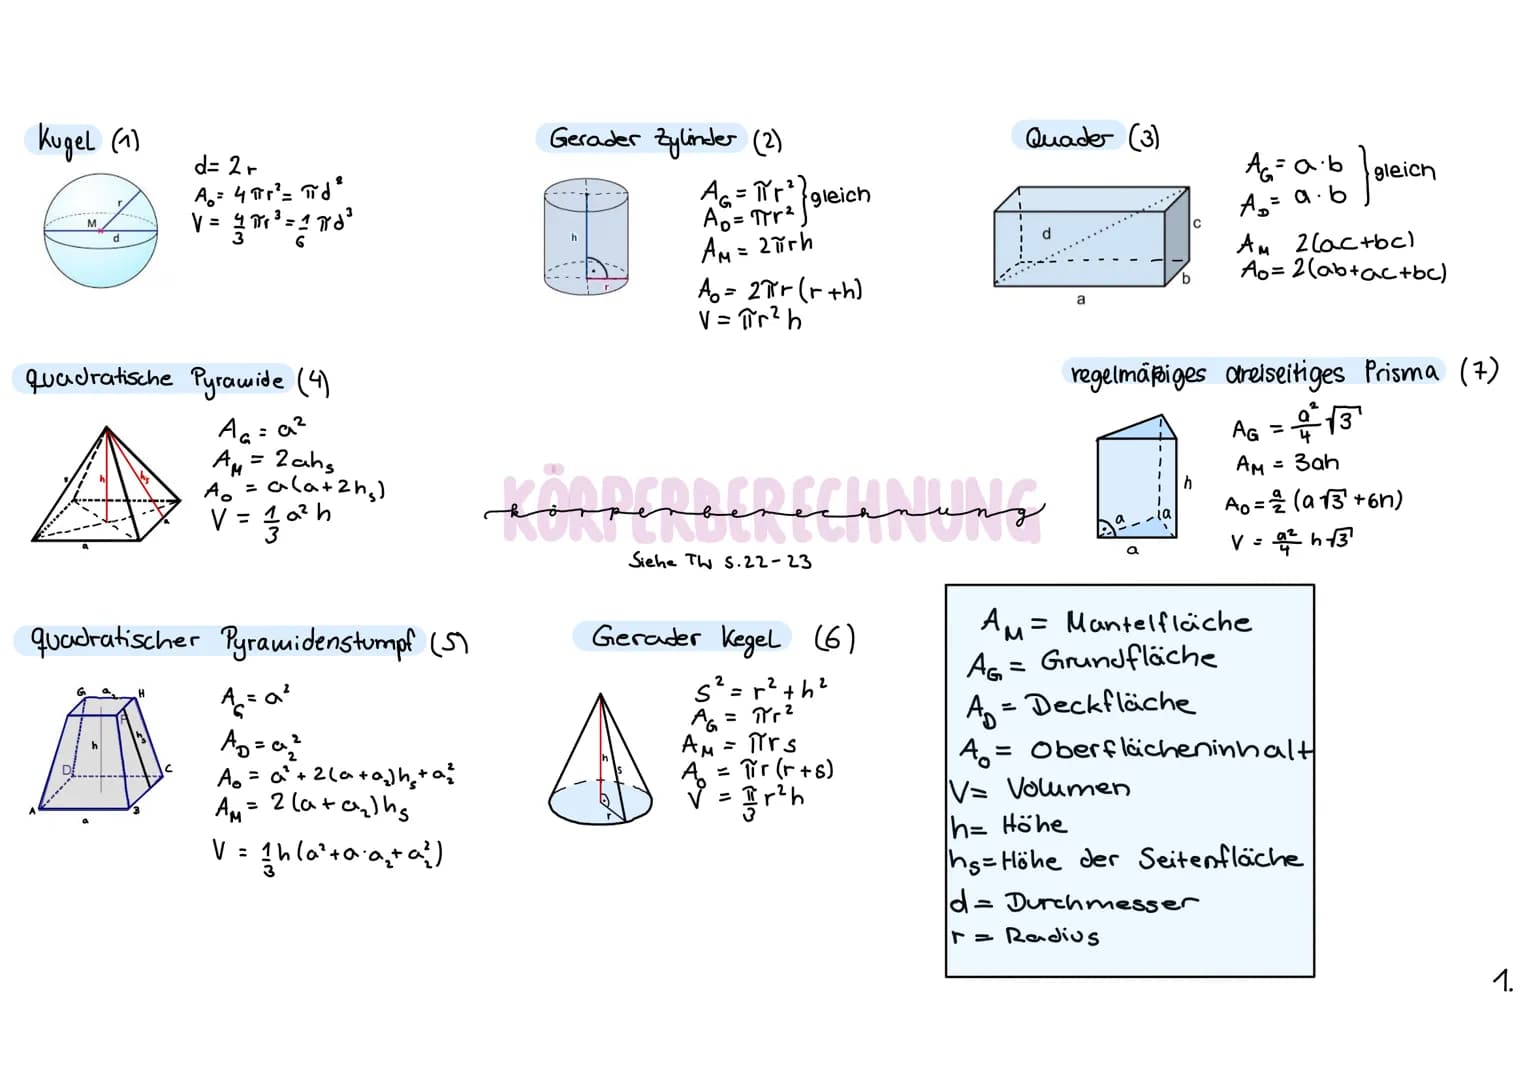 Kugel (1)
d = 2r
A₀ = 4πr² = πd²
V = 4/3 πr³ = 1/6 πd³
r
M
d
Gerader Zylinder (2)
A_G = πr² } gleich
A_D = πr²
A_M = 2πrh
A_O = 2πr(r+h)
V = πr²h
h
r
Quader (3)
A_G = a·b } gleich
A_D = a·b
A_M 2(ac+bc)
A_O = 2(ab+ac+bc)
d
c
b
a
quadratische Pyramide (4)
A_G = a²
A_M = 2ah_s
A_O = a(a+2h_s)
V = 1/3 a²h
h
h_s
a
a
KÖRPERBERECHNUNG
körperberechnung
Siehe TW S.22-23
regelmäßiges dreiseitiges Prisma (7)
A_G = a²/4 √3
A_M = 3ah
A_O = a/2 (a√3 + 6h)
V = a²/4 h√3
h
a
a
a
quadratischer Pyramidenstumpf (5)
A_G = a²
A_D = a₂²
A_O = a² + 2(a+a₂)h_s + a₂²
A_M = 2(a+a₂)h_s
V = 1/3 h(a²+a·a₂+a₂²)
G a₂ H
F
h
h_s
D
C
A
B
a
Gerader Kegel (6)
s² = r² + h²
A_G = πr²
A_M = πrs
A_O = πr(r+s)
V = π/3 r²h
h
s
r
A_M = Mantelfläche
A_G = Grundfläche
A_D = Deckfläche
A_O = Oberflächeninhalt
V = Volumen
h = Höhe
h_s = Höhe der Seitenfläche
d = Durchmesser
r = Radius
1.